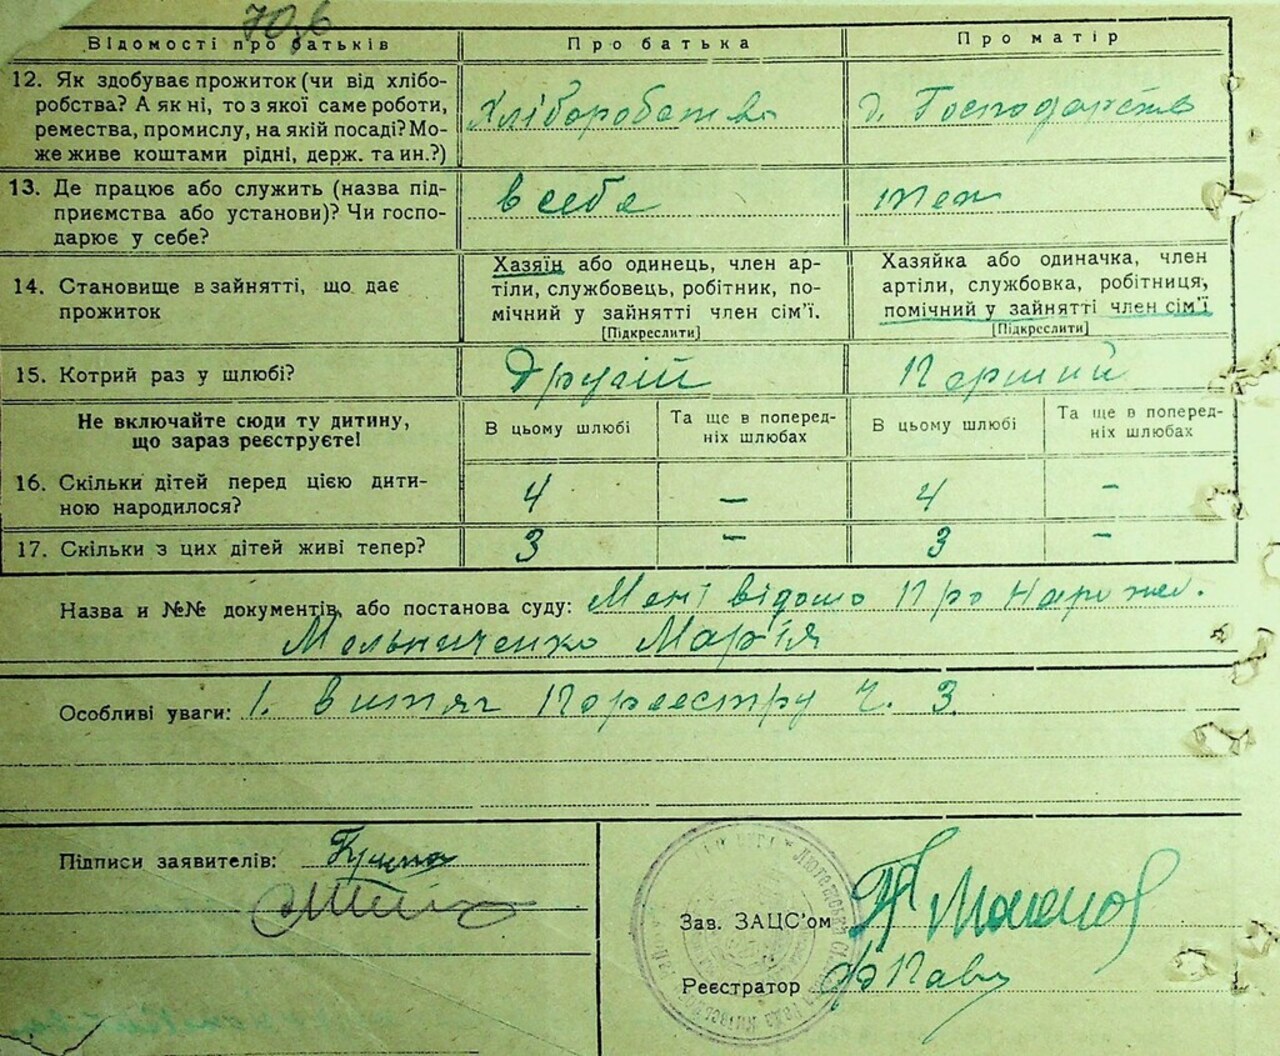 70,6
Відомості про батьків
Про батька
Про матір
12. Як здобуває прожиток (чи від хлібо-
робства? А як ні, то з якої саме роботи,
ремества, промислу, на якій посаді? Мо-
же живе коштами рідні, держ. та ин.?)
Хліборобство
д. Господарств
13. Де працює або служить (назва під-
приємства або установи)? Чи госпо-
дарює у себе?
в себе
теж
14. Становище в зайнятті, що дає
прожиток
Хазяїн або одинець, член ар-
тіли, службовець, робітник, по-
мічний у зайнятті член сім'ї.
[Підкреслити]
Хазяйка або одиначка, член
артіли, службовка, робітниця,
помічний у зайнятті член сім'ї
[Підкреслити]
15. Котрий раз у шлюбі?
Другій
Перший
Не включайте сюди ту дитину,
що зараз реєструєте!
В цьому шлюбі
Та ще в поперед-
ніх шлюбах
В цьому шлюбі
Та ще в поперед-
ніх шлюбах
16. Скільки дітей перед цією дити-
ною народилося?
4 – 4 –
17. Скільки з цих дітей живі тепер?
3 – 3 –
Назва и №№ документів, або постанова суду: Мені відомо про нарожд.
Мельниченко Мар'ія
Особливі уваги: 1. витяг по реєстру Ч. 3.
Підписи заявителів:
Зав. ЗАЦС'ом
Реєстратор